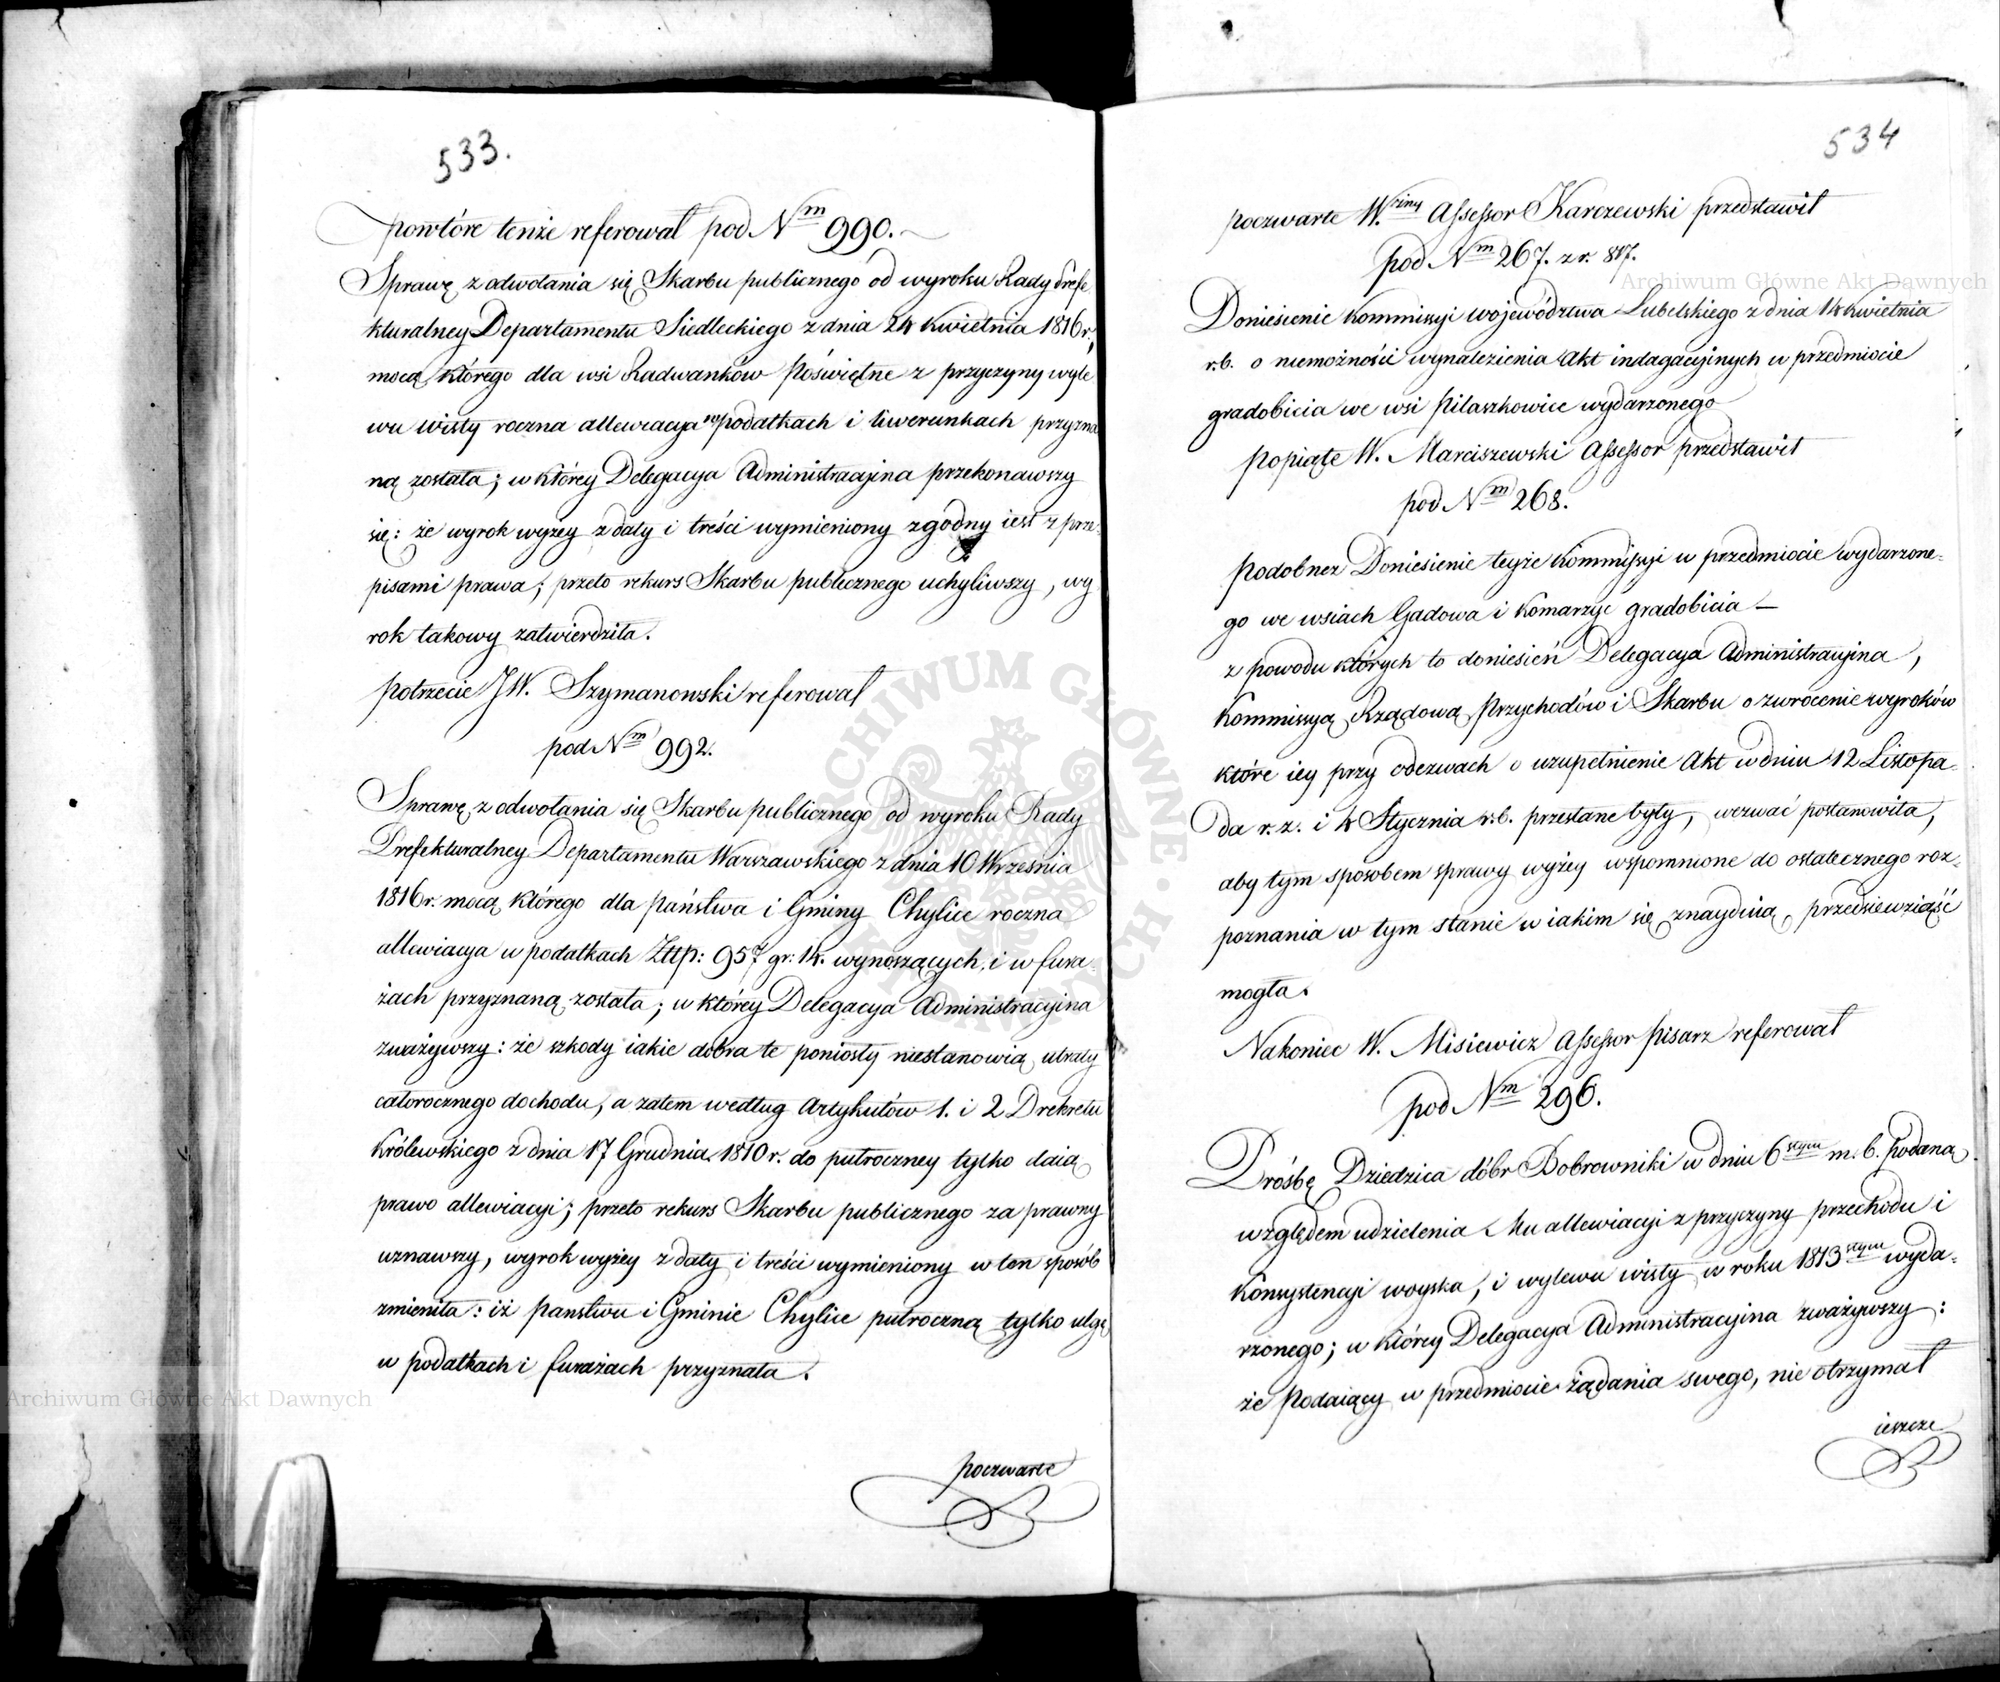 533.
powtóre tenże referował pod Nm 990.
Sprawę z odwołania się Skarbu publicznego od wyroku Rady Prefe
kturalney Departamentu Siedleckiego z dnia 24 Kwietnia 1816 r.,
mocą którego dla wsi Radwanków Poświętne z przyczyny wyle
wu wisły roczna allewiacya w podatkach i liwerunkach przyzna
ną została; w którey Delegacya Administracyjna przekonawszy
się: że wyrok wyżey z daty i treści wymieniony zgodny iest z prze-
pisami prawa; przeto rekurs Skarbu publicznego uchyliwszy, wy
rok takowy zatwierdziła.
potrzecie JW. Szymanowski referował
pod Nm 992.
Sprawę z odwołania się Skarbu publicznego od wyroku Rady
Prefekturalney Departamentu Warszawskiego z dnia 10 Września
1816 r. mocą którego dla państwa i Gminy Chylice roczna
allewiacya w podatkach Złtp: 957 gr: 14. wynoszących, i w fura-
żach przyznaną została; w którey Delegacya Administracyjna
zważywszy: że szkody iakie dobra te poniosły niestanowią utraty
całorocznego dochodu, a zatem według Artykułów 1. i 2 Drekretu
Królewskiego z dnia 17 Grudnia 1810 r. do półroczney tylko daią
prawo allewiacyi; przeto rekurs Skarbu publicznego za prawny
uznawszy, wyrok wyżey z daty i treści wymieniony w ten sposób
zmieniła: iż państwu i Gminie Chylice półroczną tylko ulgę
w podatkach i furażach przyznała.
poczwarte
534
poczwarte W. Assessor Karczewski przedstawił
pod Nm 267. z r. 817.
Doniesienie Kommissyi województwa Lubelskiego z dnia 14 Kwietnia
r.b. o niemożności wynalezienia Akt indagacyjnych w przedmiocie
gradobicia we wsi Pilaszkowice wydarzonego
popiąte W. Marciszewski Assessor przedstawił
pod Nm 268.
podobnez Doniesienie teyże Kommissyi w przedmiocie wydarzone-
go we wsiach Gadowa i Komarzyc gradobicia —
z powodu których to doniesień Delegacya Administracyjna,
Kommissyą Rządową Przychodów i Skarbu o zwrócenie wyroków
które iey przy odezwach o uzupełnienie Akt w dniu 12 Listopa-
da r. z. i 4 Stycznia r.b. przesłane były, wezwać postanowiła,
aby tym sposobem sprawy wyżey wspomnione do ostatecznego roz-
poznania w tym stanie w iakim się znayduią, przedsiewziąść
mogła.
Nakoniec W. Misiewicz Assessor Pisarz referował
pod Nm 296.
Prośbę Dziedzica dóbr Bobrowniki w dniu 6 stym m. b. podaną
względem udzielenia Mu allewiacyi z przyczyny przechodu i
Konsystencyi woyska, i wylewu wisły w roku 1813 stym wyda-
rzonego; w którey Delegacya Administracyjna zważywszy:
że Podaiący w przedmiocie żądania swego, nie otrzymał
ieszcze
Archiwum Główne Akt Dawnych
Archiwum Główne Akt Dawnych
ARCHIWUM GŁÓWNE AKT DAWNYCH